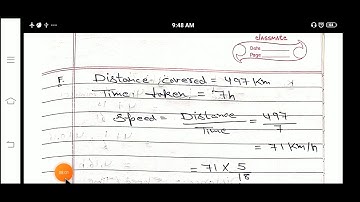 9:48 AM
classmate
Date
Page
F. Distance covered = 497 Km
Time taken = 7h
Speed = Distance / Time = 497 / 7
= 71 Km/h
= 71 × 5 / 18